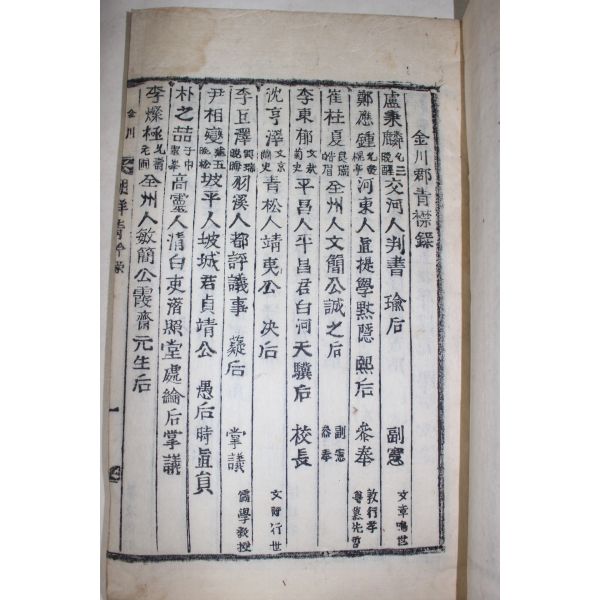 金川郡青襟錄
盧秉麟 交河人判書 瑜后 副憲 文章鳴世
鄭應鍾 河東人直提學黙隱 熙后 叅奉 敦行孝
崔柱夏 全州人文簡公誠之后 副憲 叅奉
李東郁 平昌人平昌君白河天驥后 校長
沈亨澤 青松人靖夷公 决后 文 行世
李 澤 羽溪人都評議事 薿后 掌議 儒學教授
尹相變 坡平人坡城君貞靖公 愚后時直員
朴之喆 高靈人清白吏落照堂處綸后掌議
李燦極 全州人敏簡公霞齋元生后
金川
一